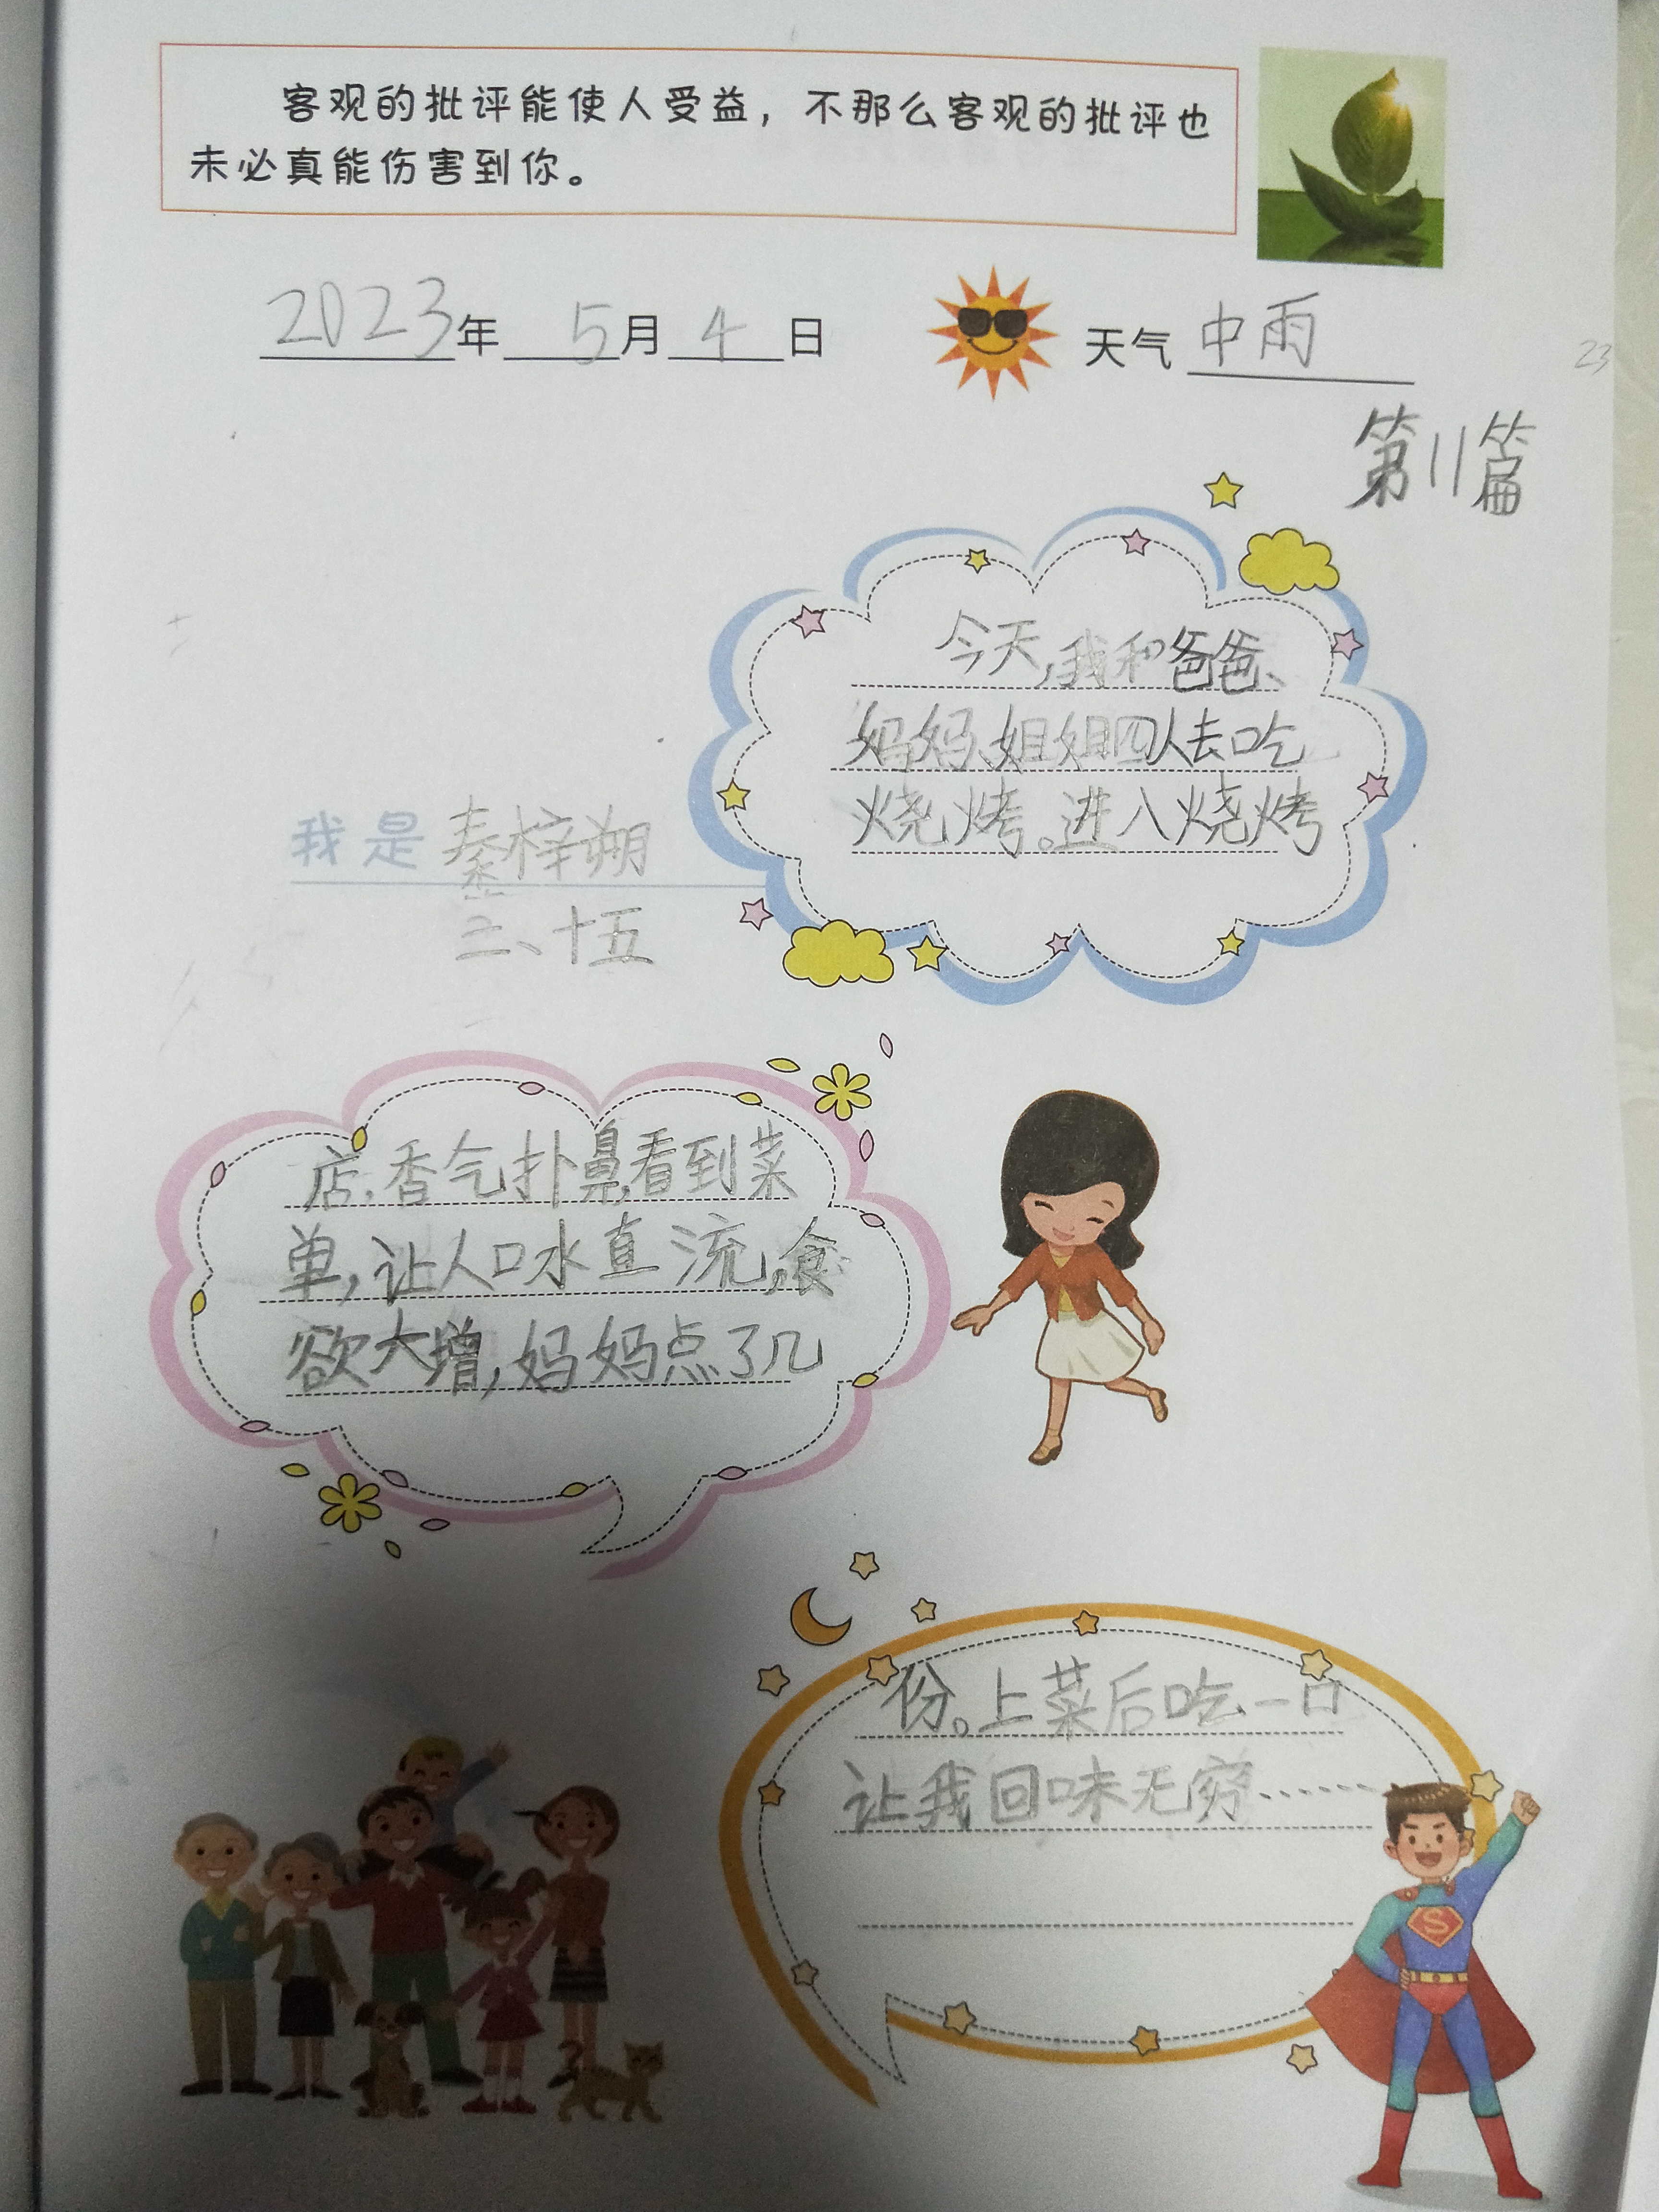 客观的批评能使人受益，不那么客观的批评也
未必真能伤害到你。
2023年 5月 4日
天气 中雨
23
第11篇
今天,我和爸爸、
妈妈、姐姐四人去吃
烧烤。进入烧烤
我是 秦梓朔
三、十五
店,香气扑鼻,看到菜
单,让人口水直流,食
欲大增,妈妈点了几
份。上菜后吃一口
让我回味无穷……
S